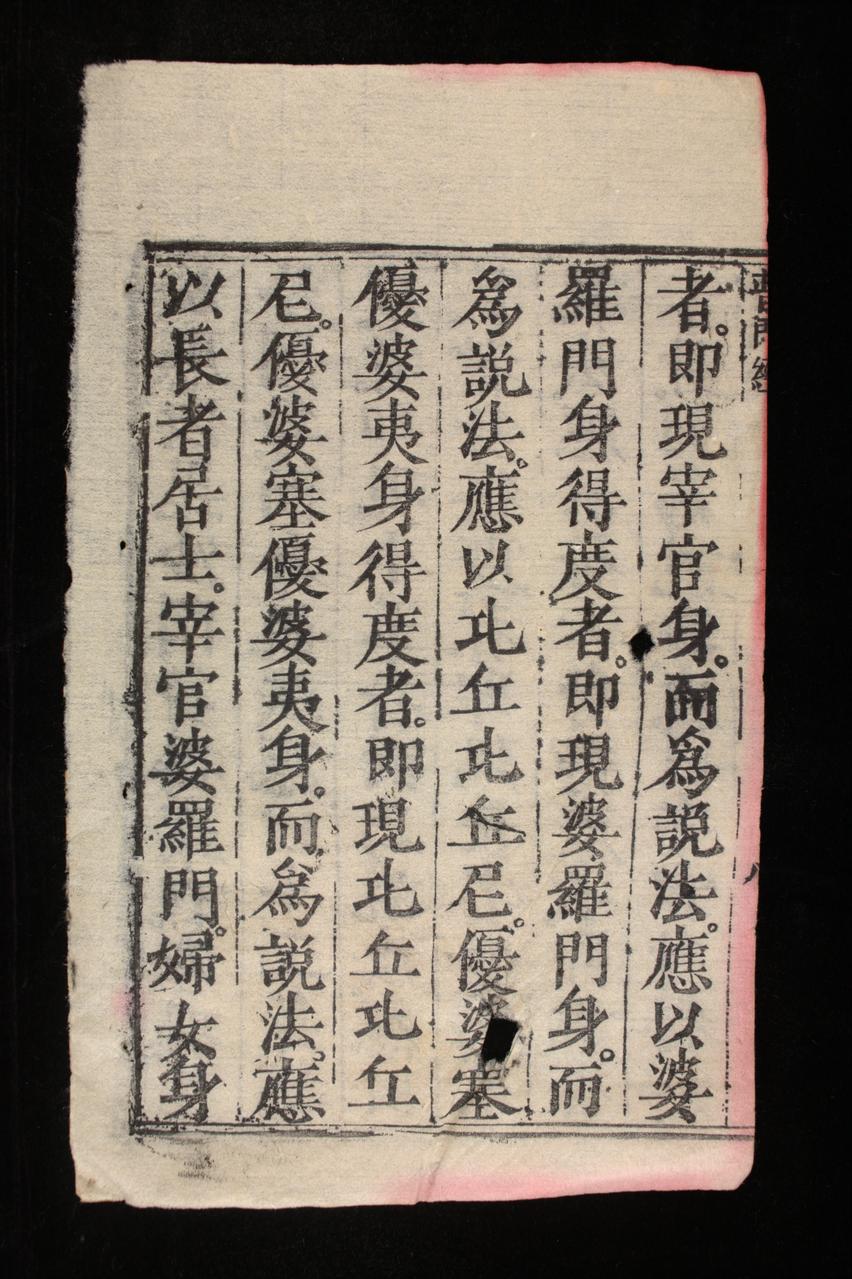 普門經
者。即現宰官身。而為說法。應以婆
羅門身得度者。即現婆羅門身。而
為說法。應以比丘比丘尼。優婆塞
優婆夷身得度者。即現比丘比丘
尼。優婆塞優婆夷身。而為說法。應
以長者居士。宰官婆羅門。婦女身